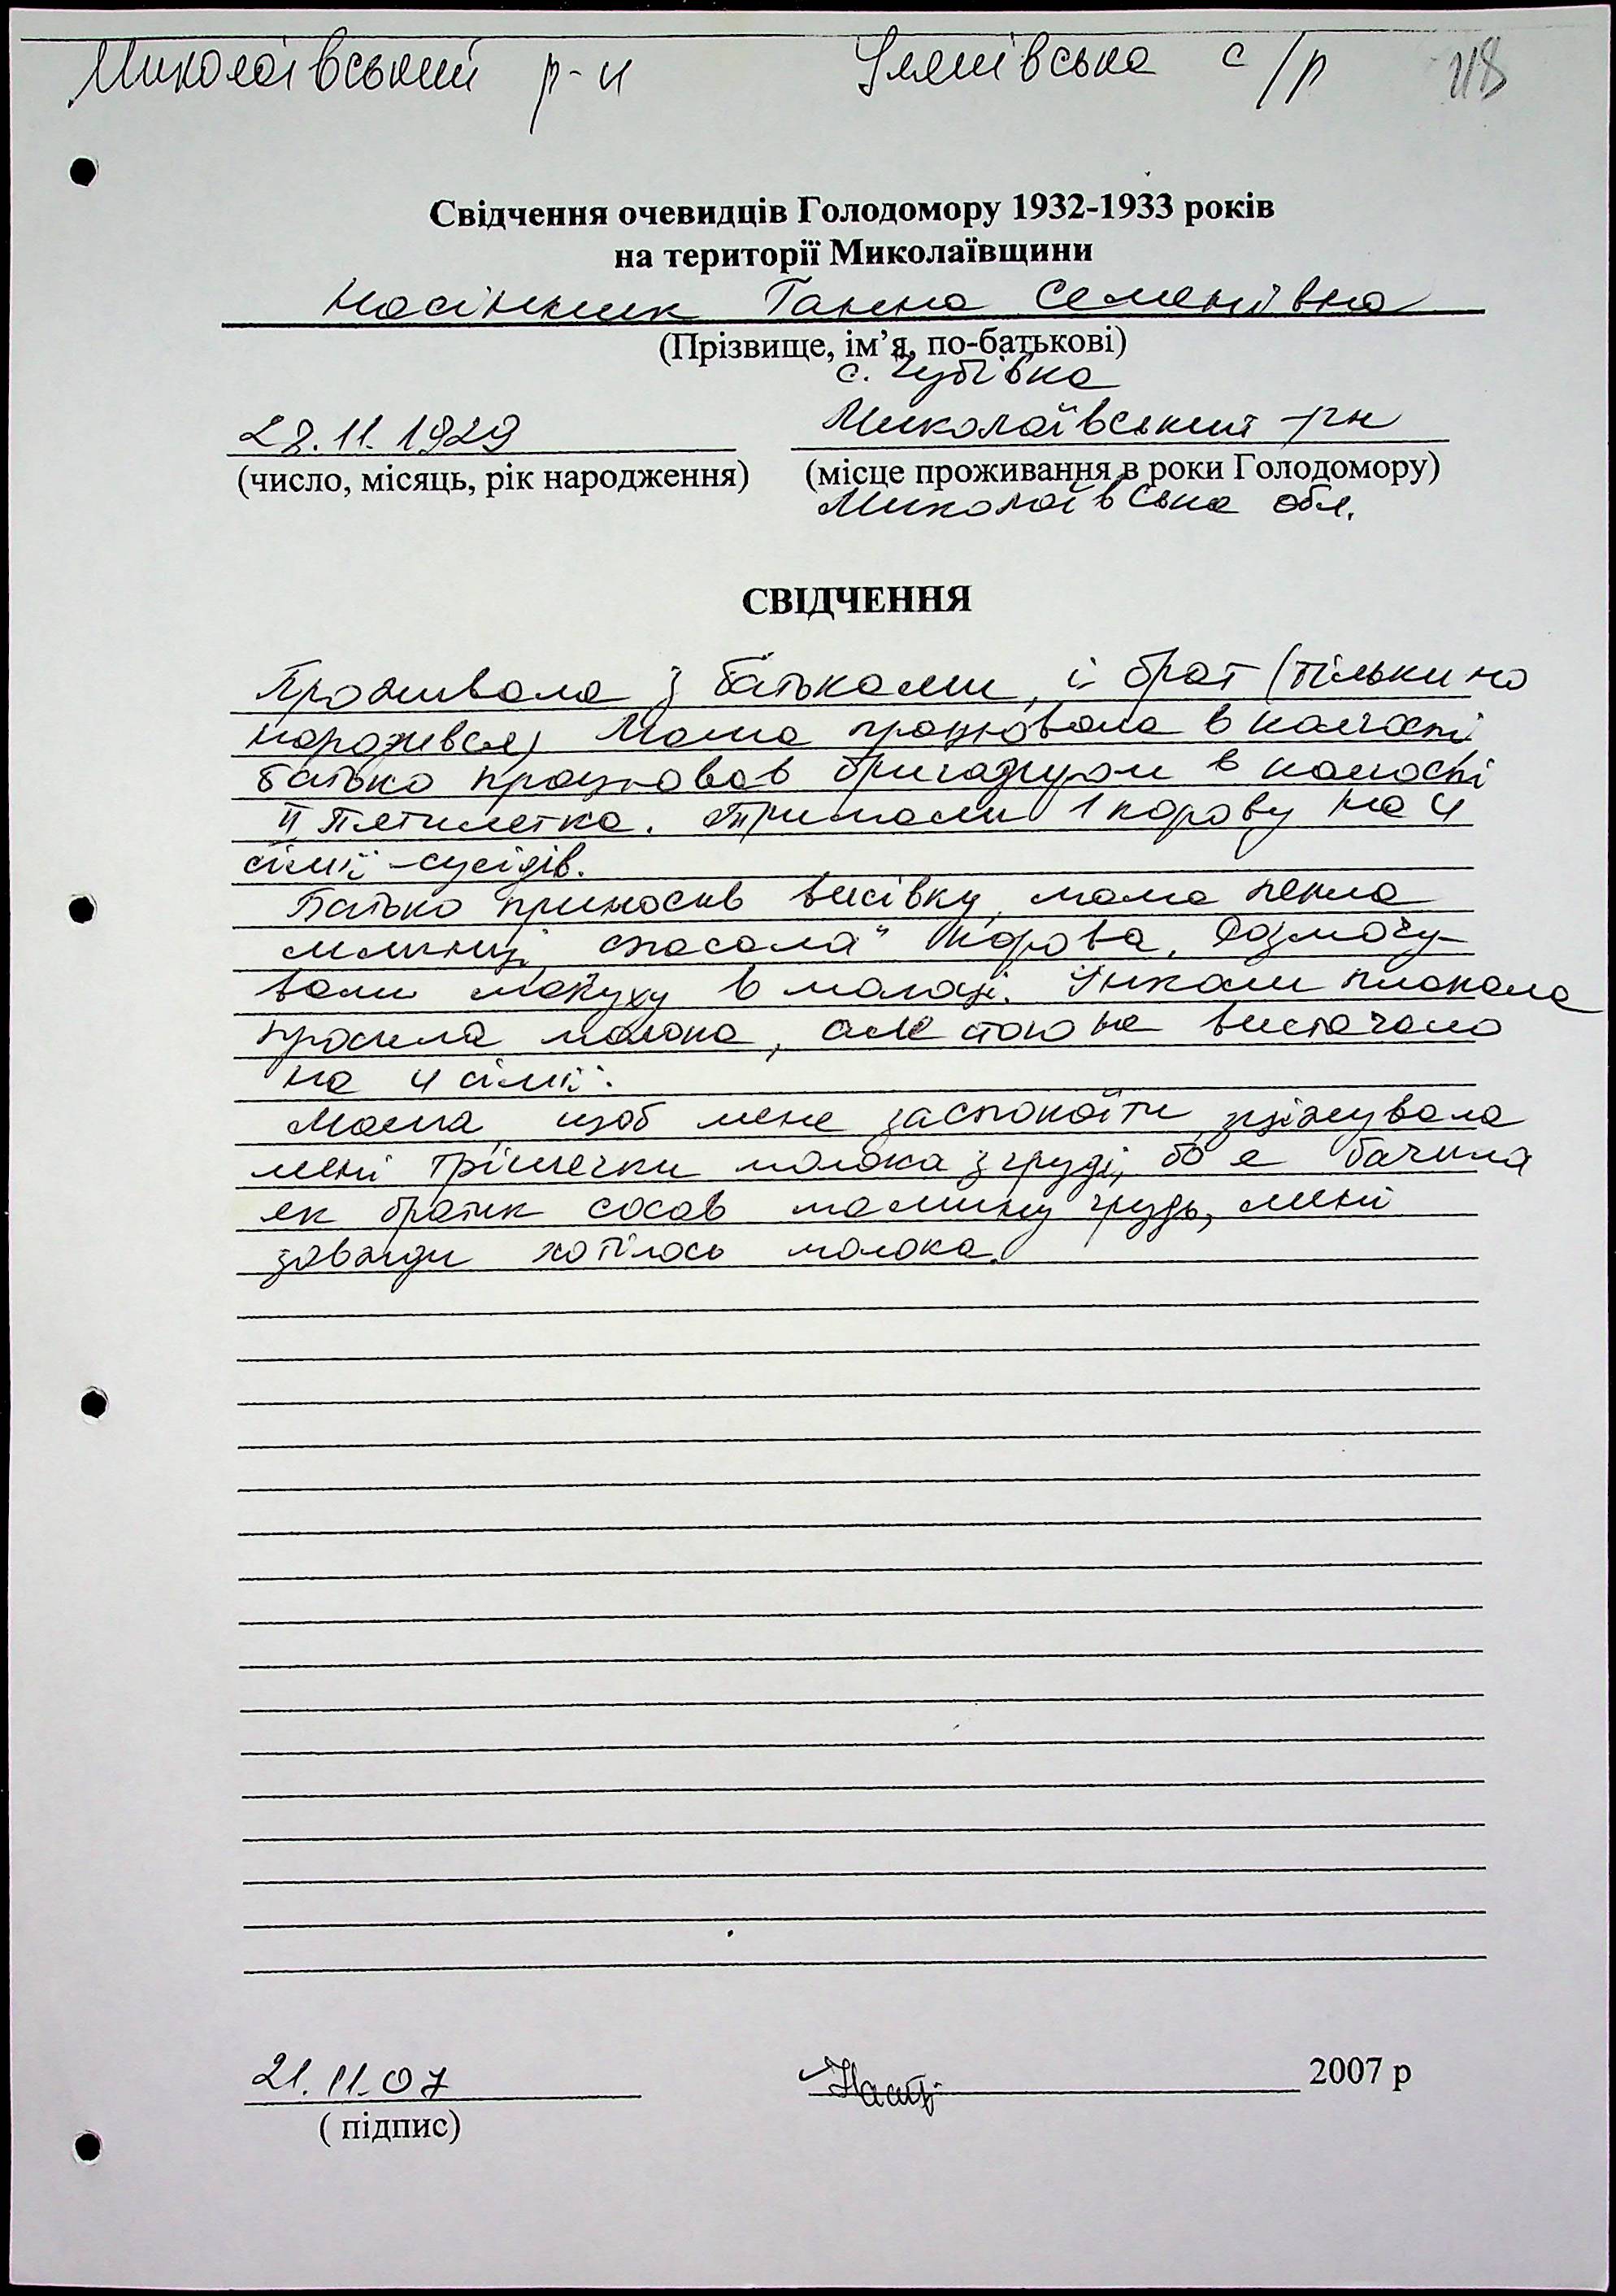 Миколаївський р-н Улянівська с/р 118
Свідчення очевидців Голодомору 1932-1933 років
на території Миколаївщини
Насінник Ганна Семенівна
(Прізвище, ім’я, по-батькові)
с. Чубівка
28.11.1929 Миколаївський р-н
(число, місяць, рік народження) (місце проживання в роки Голодомору)
Миколаївська обл.
СВІДЧЕННЯ
Проживала з батьками, і брат (тільки но
народився) Мама працювала в колгоспі
батько працював бригадиром в колгоспі
II Пятилетка. Тримали 1 корову на 4
сімї -сусідів.
Батько приносив висівку, мама пекла
млинці, "спасала" корова. Розмочу-
вали макуху в молоці. Інколи плакала
просила молока, але його не вистачало
на 4 сімї.
Мама, щоб мене заспокоїти, зціжувала
мені трішечки молока з груді, бо я бачила
як братик сосав мамину грудь, мені
завжди хотілось молока.
21.11.07 2007 р
( підпис)